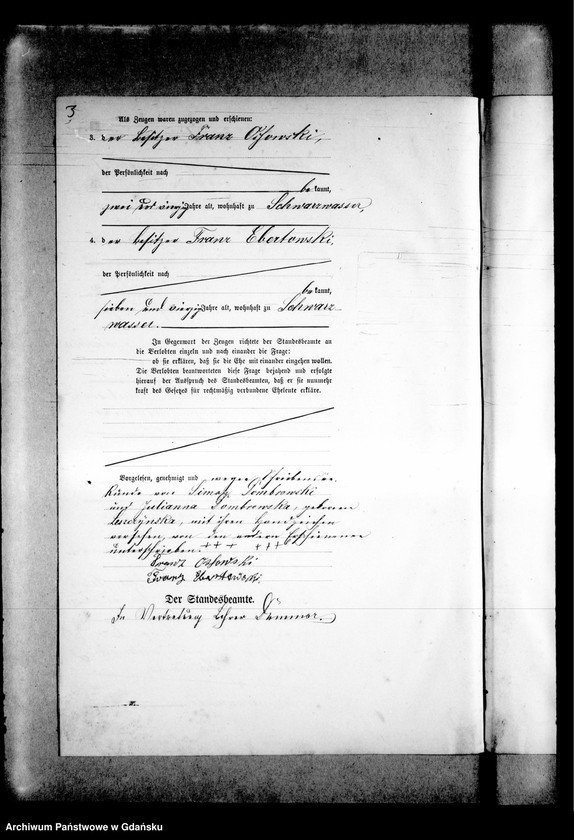 3
Als Zeugen waren zugezogen und erschienen:
3. der Besitzer Franz Ossowski,
der Persönlichkeit nach
bekannt,
zwei und vierzig Jahre alt, wohnhaft zu Schwarzwasser,
4. der Besitzer Franz Ebertowski,
der Persönlichkeit nach
bekannt,
sieben und vierzig Jahre alt, wohnhaft zu Schwarz
wasser.
In Gegenwart der Zeugen richtete der Standesbeamte an
die Verlobten einzeln und nach einander die Frage:
ob sie erklären, daß sie die Ehe mit einander eingehen wollen.
Die Verlobten beantworteten diese Frage bejahend und erfolgte
hierauf der Ausspruch des Standesbeamten, daß er sie nunmehr
kraft des Gesetzes für rechtmäßig verbundene Eheleute erkläre.
Vorgelesen, genehmigt und wegen Schreibensun
kunde von Dombrowski
und Julianna Dombrowska, geborene
mit ihren Handzeichen
versehen, von den anderen Erschienenen
unterschrieben. +++ +++
Franz Ossowski
Franz Ebertowski.
Der Standesbeamte.
In Vertretung Lehrer